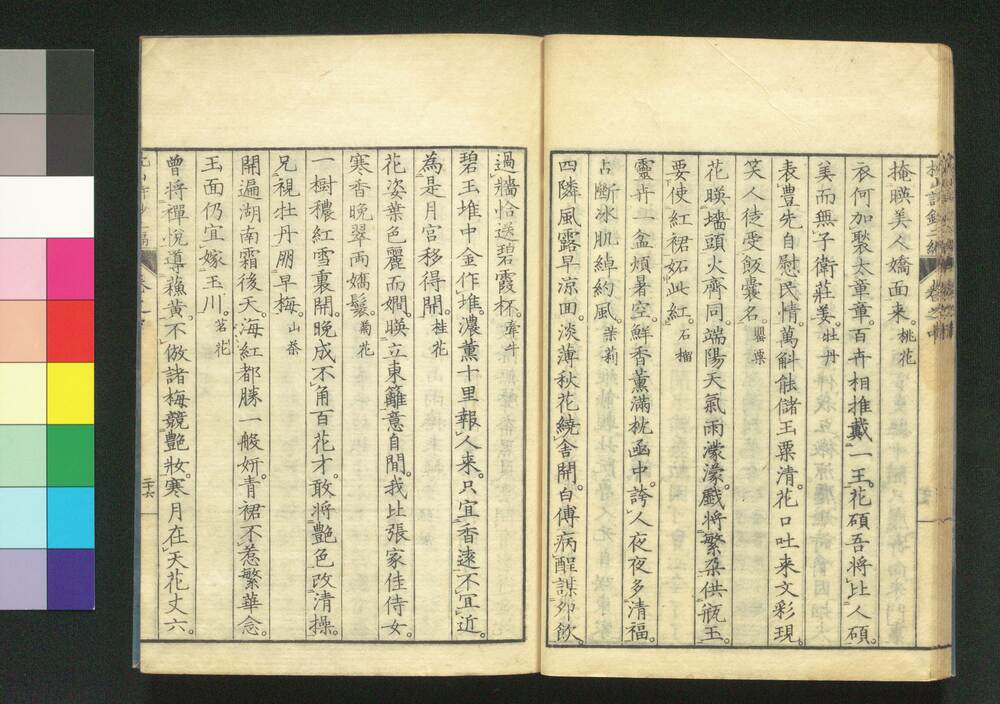 掩暎美人嬌面来。桃花
衣何加褧太童童。百卉相推戴一王。花碩吾將比人碩。
美而無子衛莊姜。牡丹
表豊先自慰民情。萬斛能儲玉粟清。花口吐来文彩現。
笑人徒受飯嚢名。罌粟
花暎墻頭火齊同。端陽天氣雨濛濛。戯將繁朶供瓶玉。
要使紅裙妬此紅。石榴
靈卉一盆煩暑空。鮮香薫滿枕凾中。誇人夜夜多清福。
占斷冰肌綽約風。茉莉
四隣風露早涼回。淡薄秋花繞舎開。白傅病酲謀夘飲。
過牆恰送碧霞杯。牽牛
碧玉堆中金作堆。濃薫十里報人来。只宜香遠不宜近。
為是月宮移得開。桂花
花姿葉色麗而嫺。暎立東籬意自閒。我比張家佳侍女。
寒香晚翠兩嬌鬟。菊花
一樹穠紅雪裏開。晚成不角百花才。敢將艶色改清操。
兄視牡丹朋早梅。山茶
開遍湖南霜後天。海紅都勝一般妍。青裙不惹繁華念。
玉面仍宜嫁玉川。茗花
曾將禪悦導蘓黄。不倣諸梅競艶妝。寒月在天花丈六。
二十六